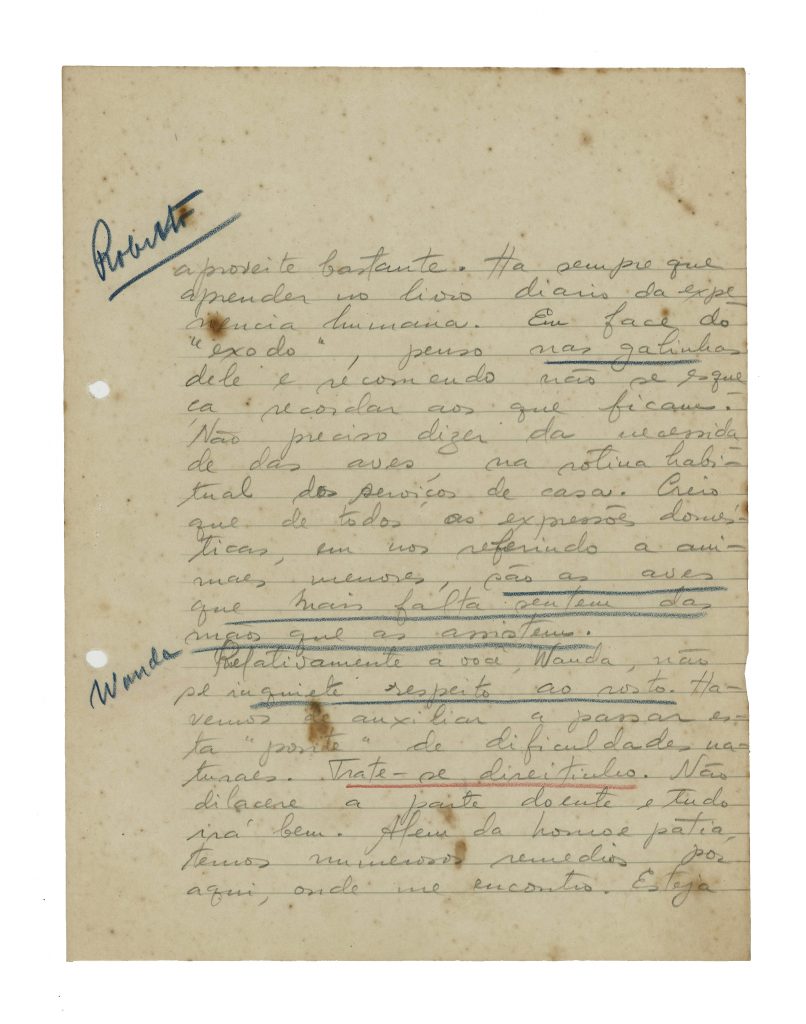 Roberto
aproveite bastante. Ha sempre que
aprender no livro diario da expe-
riencia humana. Em face do
"exodo", penso nas galinhas
dele e recomendo não se esque
ça recordar aos que ficam.
Não preciso dizer da necessida
de das aves, na rotina habi-
tual dos serviços de casa. Creio
que de todos as expressões domés-
ticas, em nos referindo a ani-
maes menores, são as aves
que mais falta sentem das
mãos que as assistem.
Wanda
Relativamente a você, Wanda, não
se inquiete respeito ao rosto. Ha-
vemos de auxiliar a passar es-
ta "ponte" de dificuldades na-
turaes. Trate-se direitinho. Não
dilacere a parte doente e tudo
irá bem. Alem da homoepatia,
temos numerosos remedios por
aqui, onde me encontro. Esteja